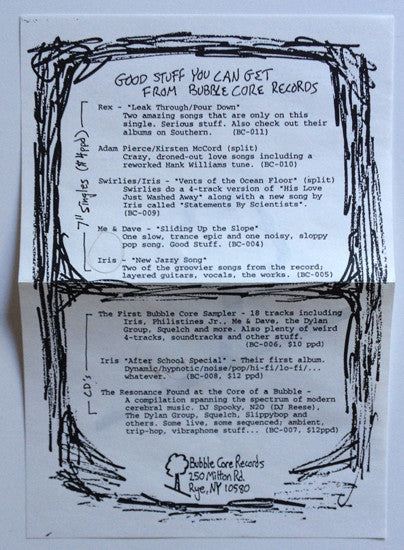 GOOD STUFF YOU CAN GET
FROM BUBBLE CORE RECORDS
7" Singles ($4ppd)
Rex - "Leak Through/Pour Down"
Two amazing songs that are only on this
single. Serious stuff. Also check out their
albums on Southern. (BC-011)
Adam Pierce/Kirsten McCord (split)
Crazy, droned-out love songs including a
reworked Hank Williams tune. (BC-010)
Swirlies/Iris - "Vents of the Ocean Floor" (split)
Swirlies do a 4-track version of "His Love
Just Washed Away" along with a new song by
Iris called "Statements By Scientists".
(BC-009)
Me & Dave - "Sliding Up the Slope"
One slow, trance epic and one noisy, sloppy
pop song. Good Stuff. (BC-004)
Iris - "New Jazzy Song"
Two of the groovier songs from the record;
layered guitars, vocals, the works. (BC-005)
CD's
The First Bubble Core Sampler - 18 tracks including
Iris, Philistines Jr., Me & Dave, the Dylan
Group, Squelch and more. Also plenty of weird
4-tracks, soundtracks and other stuff.
(BC-006, $10 ppd)
Iris "After School Special" - Their first album.
Dynamic/hypnotic/noise/pop/hi-fi/lo-fi/...
whatever. (BC-008, $12 ppd)
The Resonance Found at the Core of a Bubble -
A compilation spanning the spectrum of modern
cerebral music. DJ Spooky, N2O (DJ Reese),
The Dylan Group, Squelch, Slippybop and
others. Some live, some sequenced; ambient,
trip-hop, vibraphone stuff... (BC-007, $12ppd)
Bubble Core Records
250 Milton Rd.
Rye, NY 10580